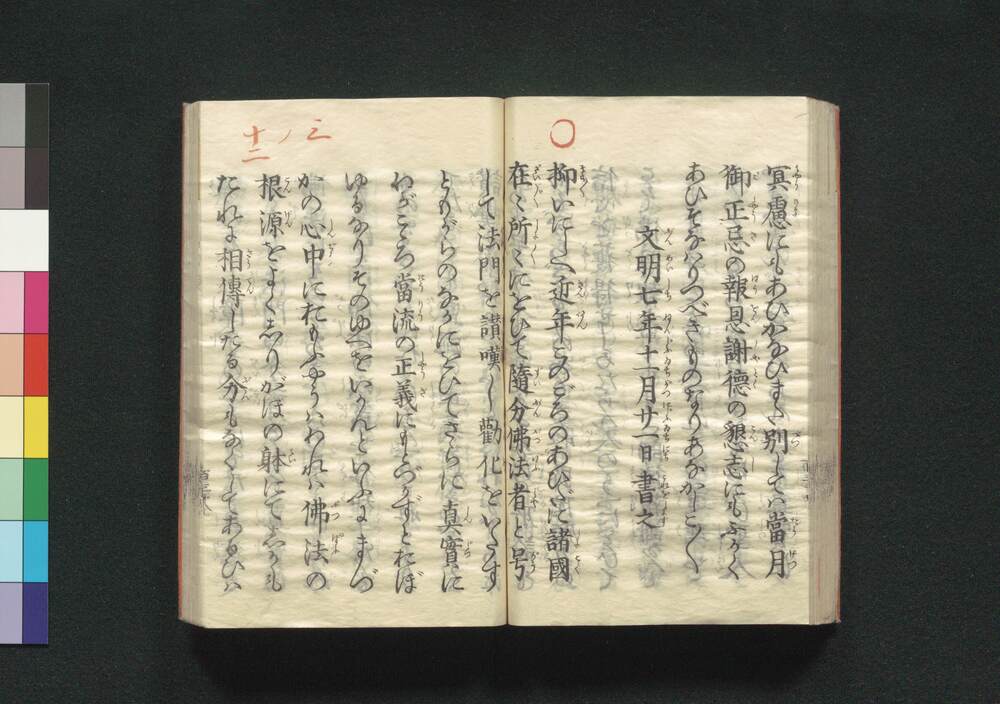 冥慮にもあひかなひまた別しては當月
御正忌の報恩謝徳の懇志にもふかく
あひそなはりつべきものなりあなかしこ〳〵
文明七年十一月廿一日書之
〇
抑いにしへ近年このごろのあひだに諸國
在々所々にをひて隨分佛法者と号
して法門を讃嘆し勸化をいたす
ともがらのなかにをひてさらに真實に
わがこゝろ當流の正義にもとづかずとおぼ
ゆるなりそのゆへをいかんといふにまづ
かの心中におもふやうはわれは佛法の
根源をよくしりがほの躰にてしかも
たれに相傳したる分もなくしてあるひは
三ノ
十二